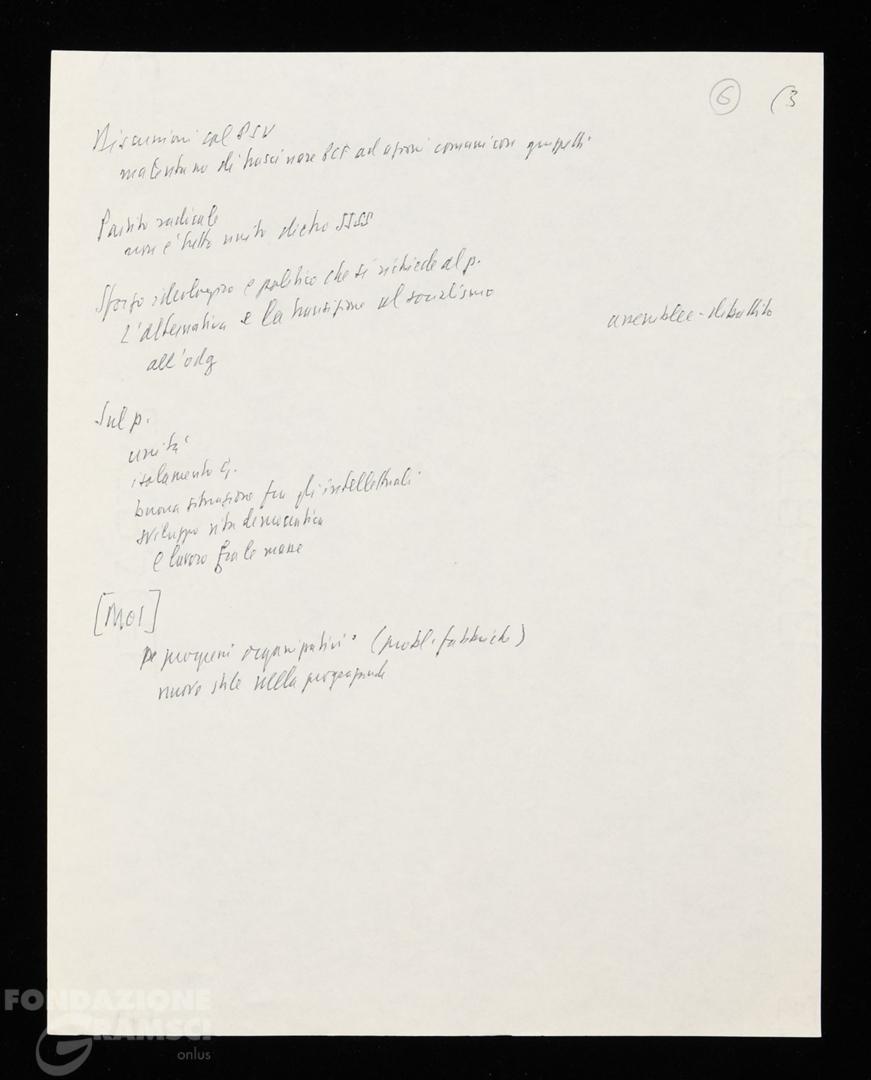 6 (3
Discussioni col PSU
ma tentano di trascinare PCF ad azioni comuni con gruppetti
Partito radicale
non è tutto unito dietro SSSS
Sforzo ideologico e politico che si richiede al p.
L'alternativa e la transizione al socialismo
all'odg
assemblee-dibattito
Sul p.
unità
isolamento G.
buona situazione fra gli intellettuali
sviluppo vita democratica
e lavoro fra le masse
[Noi]
progressi organizzativi (probl. fabbriche)
nuovo stile nella propaganda
FONDAZIONE
GRAMSCI
onlus